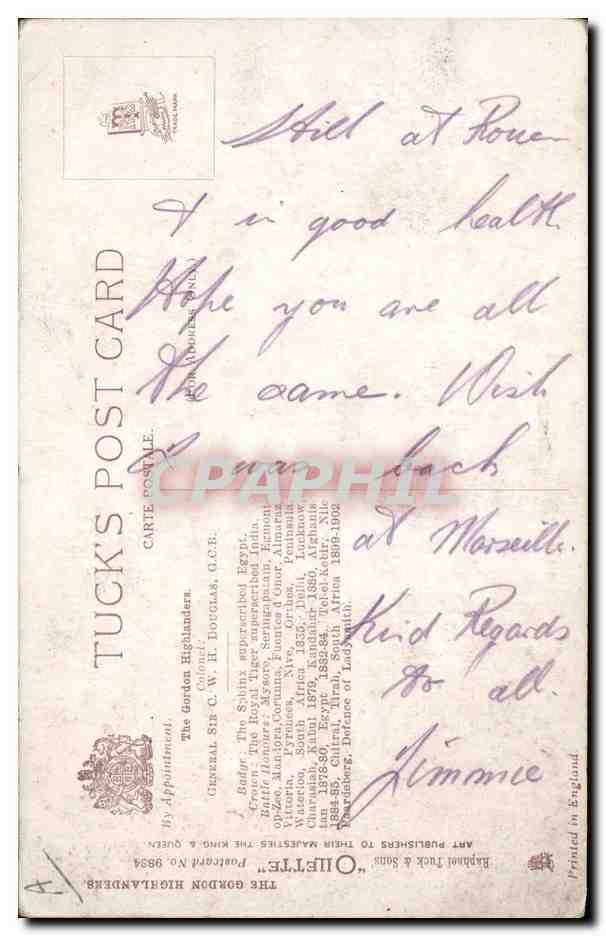 Still at Rouen
& in good health
Hope you are all
the same. Wish
I was back
at Marseille.
Kind Regards
to all.
Jimmie
TRADE MARK
TUCK'S POST CARD
CARTE POSTALE.
(FOR ADDRESS ONLY.)
By Appointment.
The Gordon Highlanders.
Colonel:
GENERAL SIR C. W. H. DOUGLAS, G.C.B.
Badge. The Sphinx superscribed Egypt.
Crown: The Royal Tiger superscribed India.
Battle Honours: Mysore, Seringapatam, Egmont-
op-Zee, Mandora, Corunna, Fuentes d'Onor, Almaraz,
Vittoria, Pyrenees, Nive, Orthes, Peninsula,
Waterloo, South Africa 1835, Delhi, Lucknow,
Charasiah, Kabul 1879, Kandahar 1880, Afghanis-
tan 1878-80, Egypt 1882-84, Tel-el-Kebir, Nile
1884-85, Chitral, Tirah, South Africa 1899-1902
Paardeberg, Defence of Ladysmith.
THE GORDON HIGHLANDERS.
Raphael Tuck & Sons "OILETTE" Postcard No. 9884
ART PUBLISHERS TO THEIR MAJESTIES THE KING & QUEEN
Printed in England
CPAPHIL